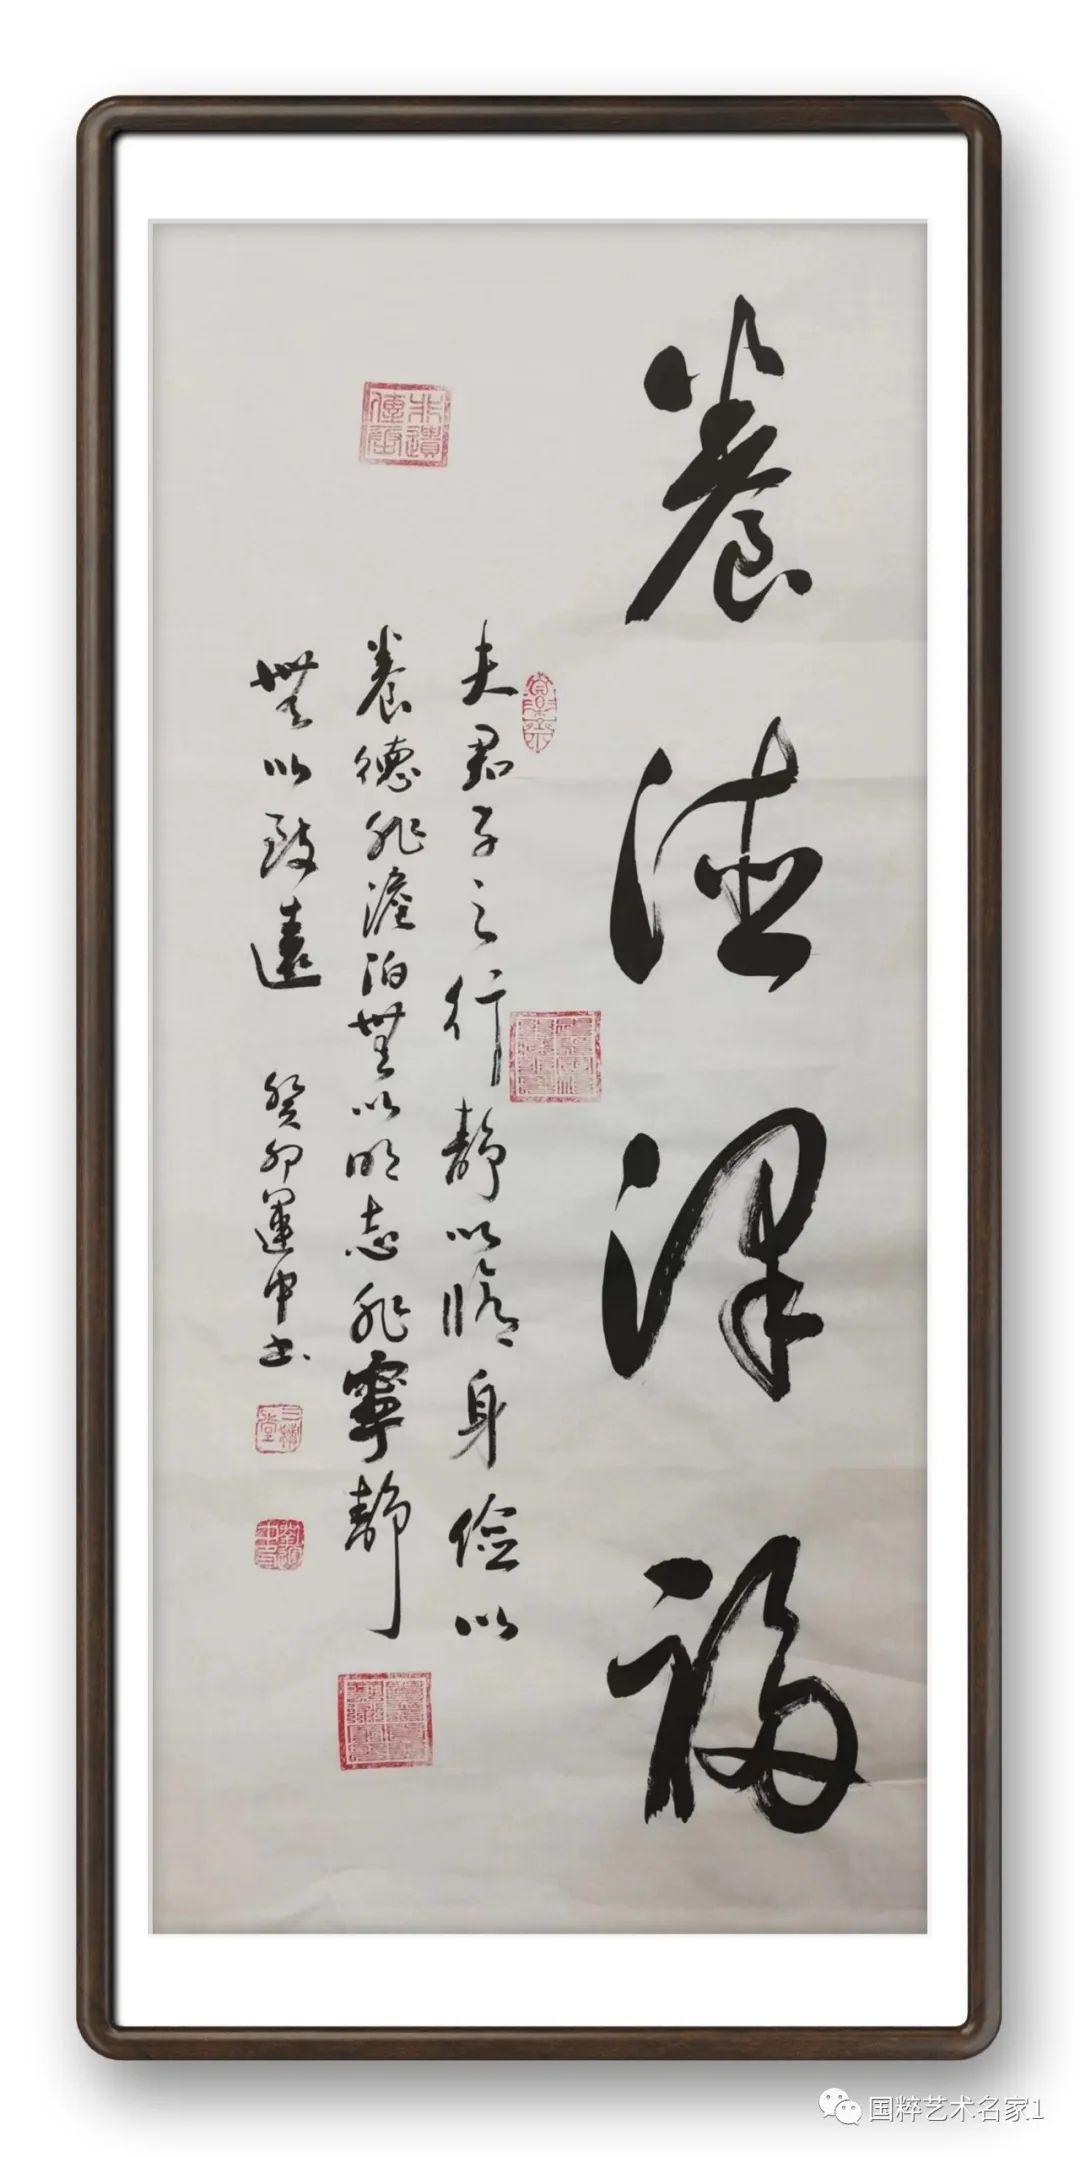 養德泽福
夫君子之行静以修身俭以
養德非澹泊無以明志非寧静
無以致遠 癸卯運中书
国粹艺术名家1